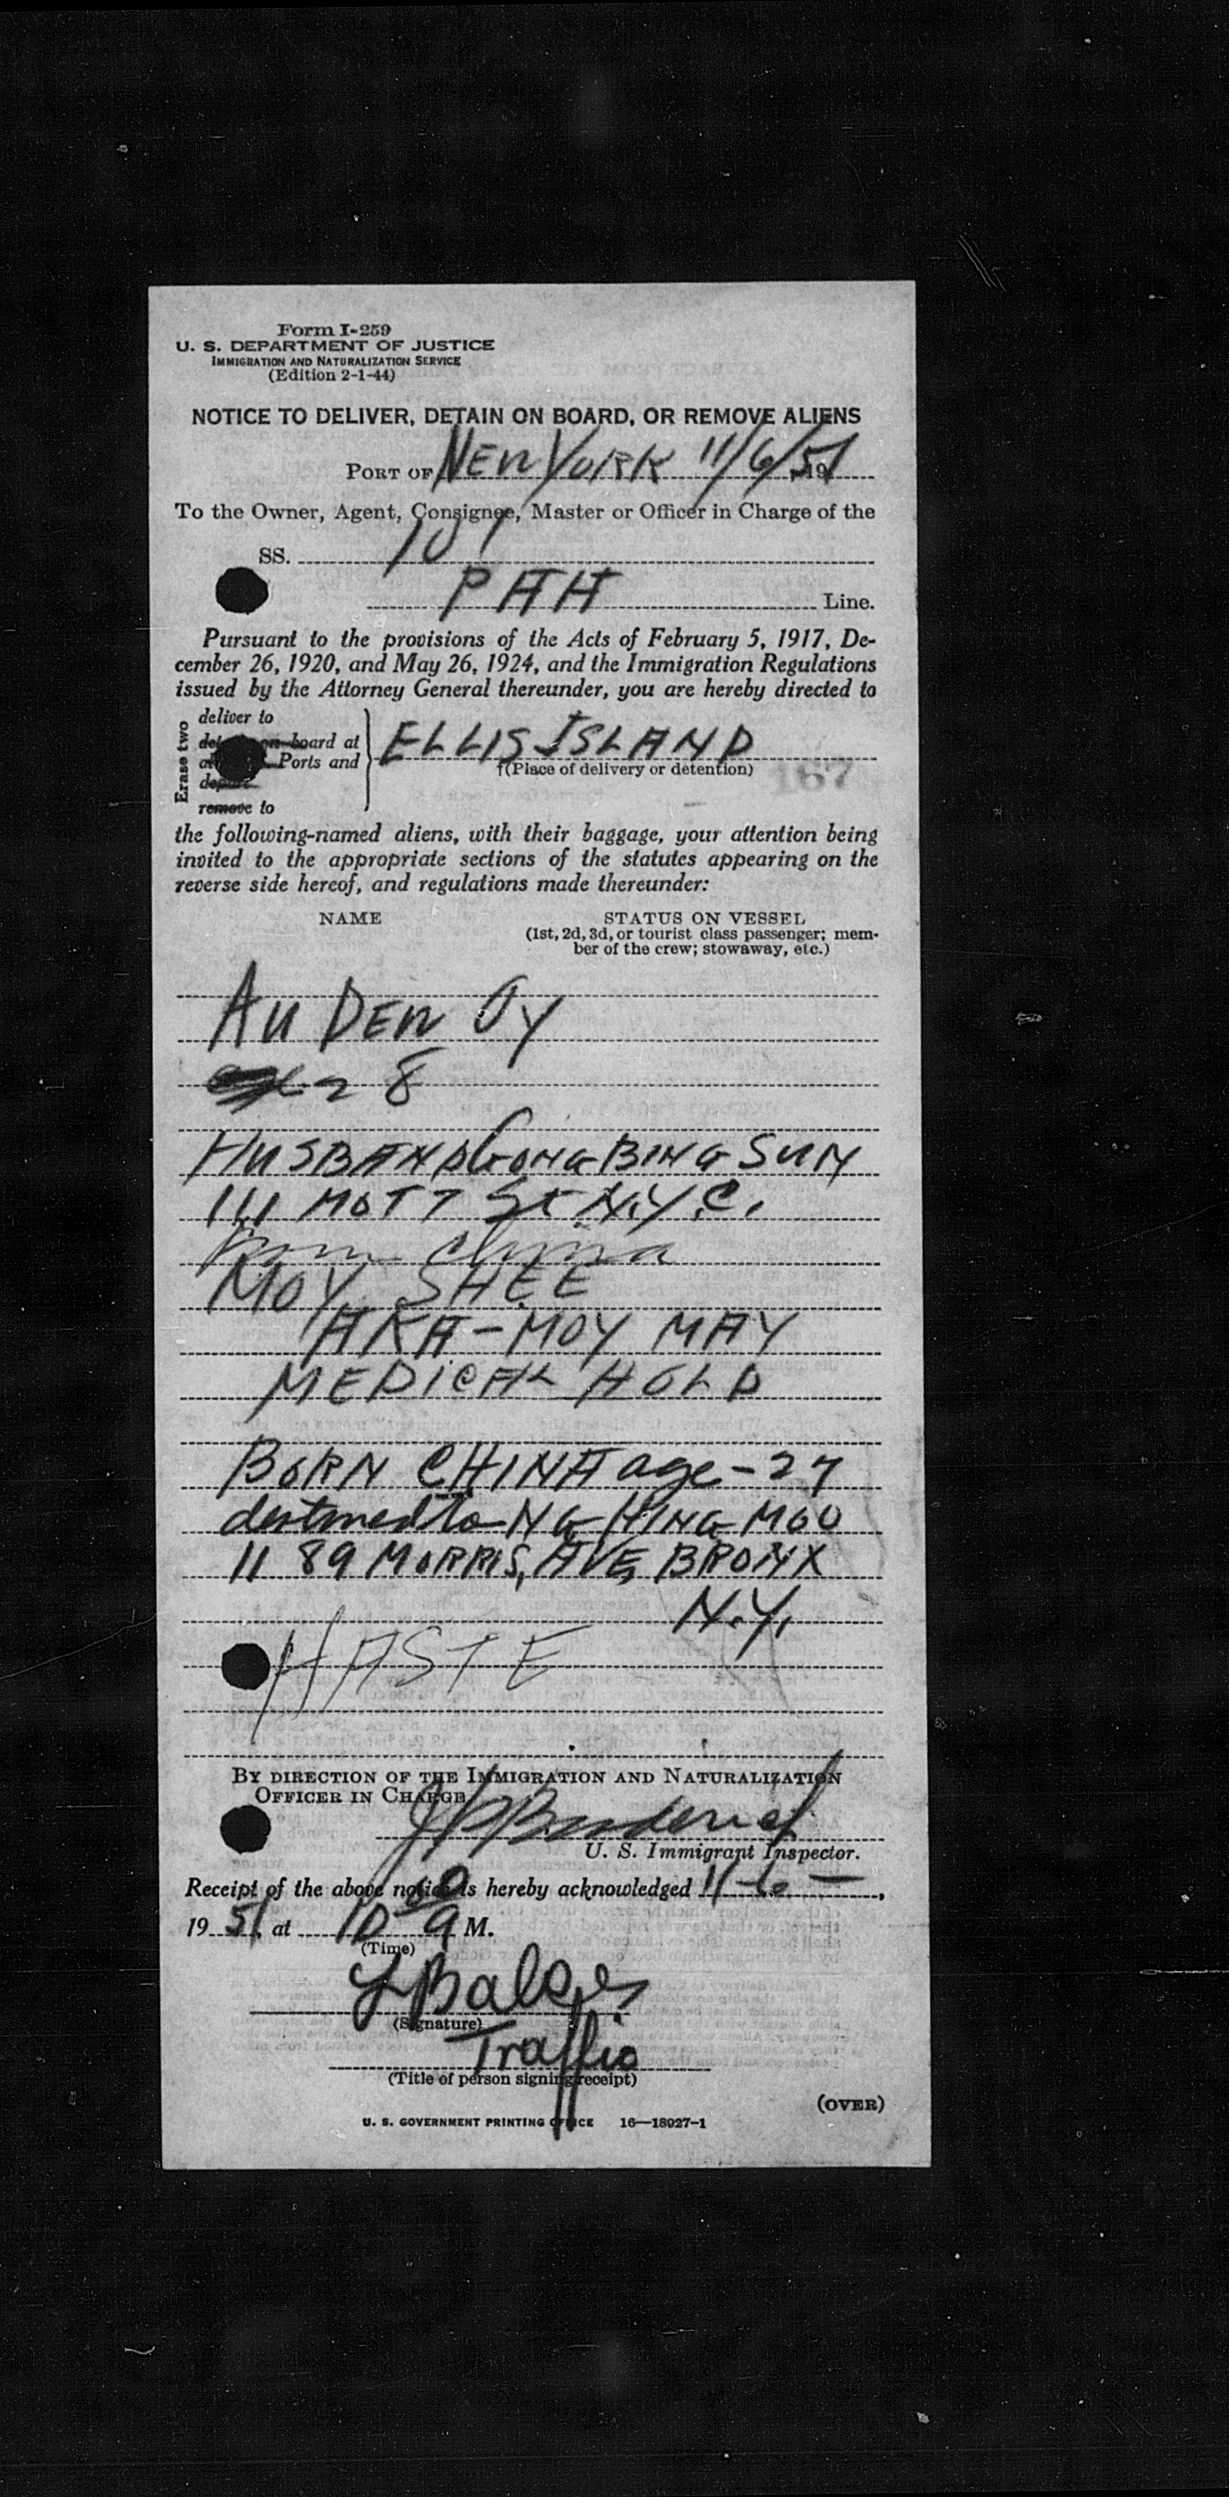 Form I-259
U. S. DEPARTMENT OF JUSTICE
IMMIGRATION AND NATURALIZATION SERVICE
(Edition 2-1-44)
NOTICE TO DELIVER, DETAIN ON BOARD, OR REMOVE ALIENS
PORT OF NEW YORK 11/6/51, 19
To the Owner, Agent, Consignee, Master or Officer in Charge of the
SS. 101
PAA Line.
Pursuant to the provisions of the Acts of February 5, 1917, De-
cember 26, 1920, and May 26, 1924, and the Immigration Regulations
issued by the Attorney General thereunder, you are hereby directed to
Erase two
deliver to
on board at ELLIS ISLAND
Ports and †(Place of delivery or detention)
167
remove to
the following-named aliens, with their baggage, your attention being
invited to the appropriate sections of the statutes appearing on the
reverse side hereof, and regulations made thereunder:
NAME STATUS ON VESSEL
(1st, 2d, 3d, or tourist class passenger; mem-
ber of the crew; stowaway, etc.)
AU DEW OY
28
HUSBAND GONG BING SUN
111 MOTT St N.Y.C.
Born China
MOY SHEE
AKA - MOY MAY
MEDICAL HOLD
BORN CHINA age - 27
destined to NG HING MOU
1189 MORRIS, AVE, BRONX
N.Y.
HASTE
BY DIRECTION OF THE IMMIGRATION AND NATURALIZATION
OFFICER IN CHARGE
U. S. Immigrant Inspector.
Receipt of the above notice is hereby acknowledged 11-6-,
19 51, at 10 00 A M.
(Time)
(Signature)
Traffic
(Title of person signing receipt)
(OVER)
U. S. GOVERNMENT PRINTING OFFICE 16—18927-1